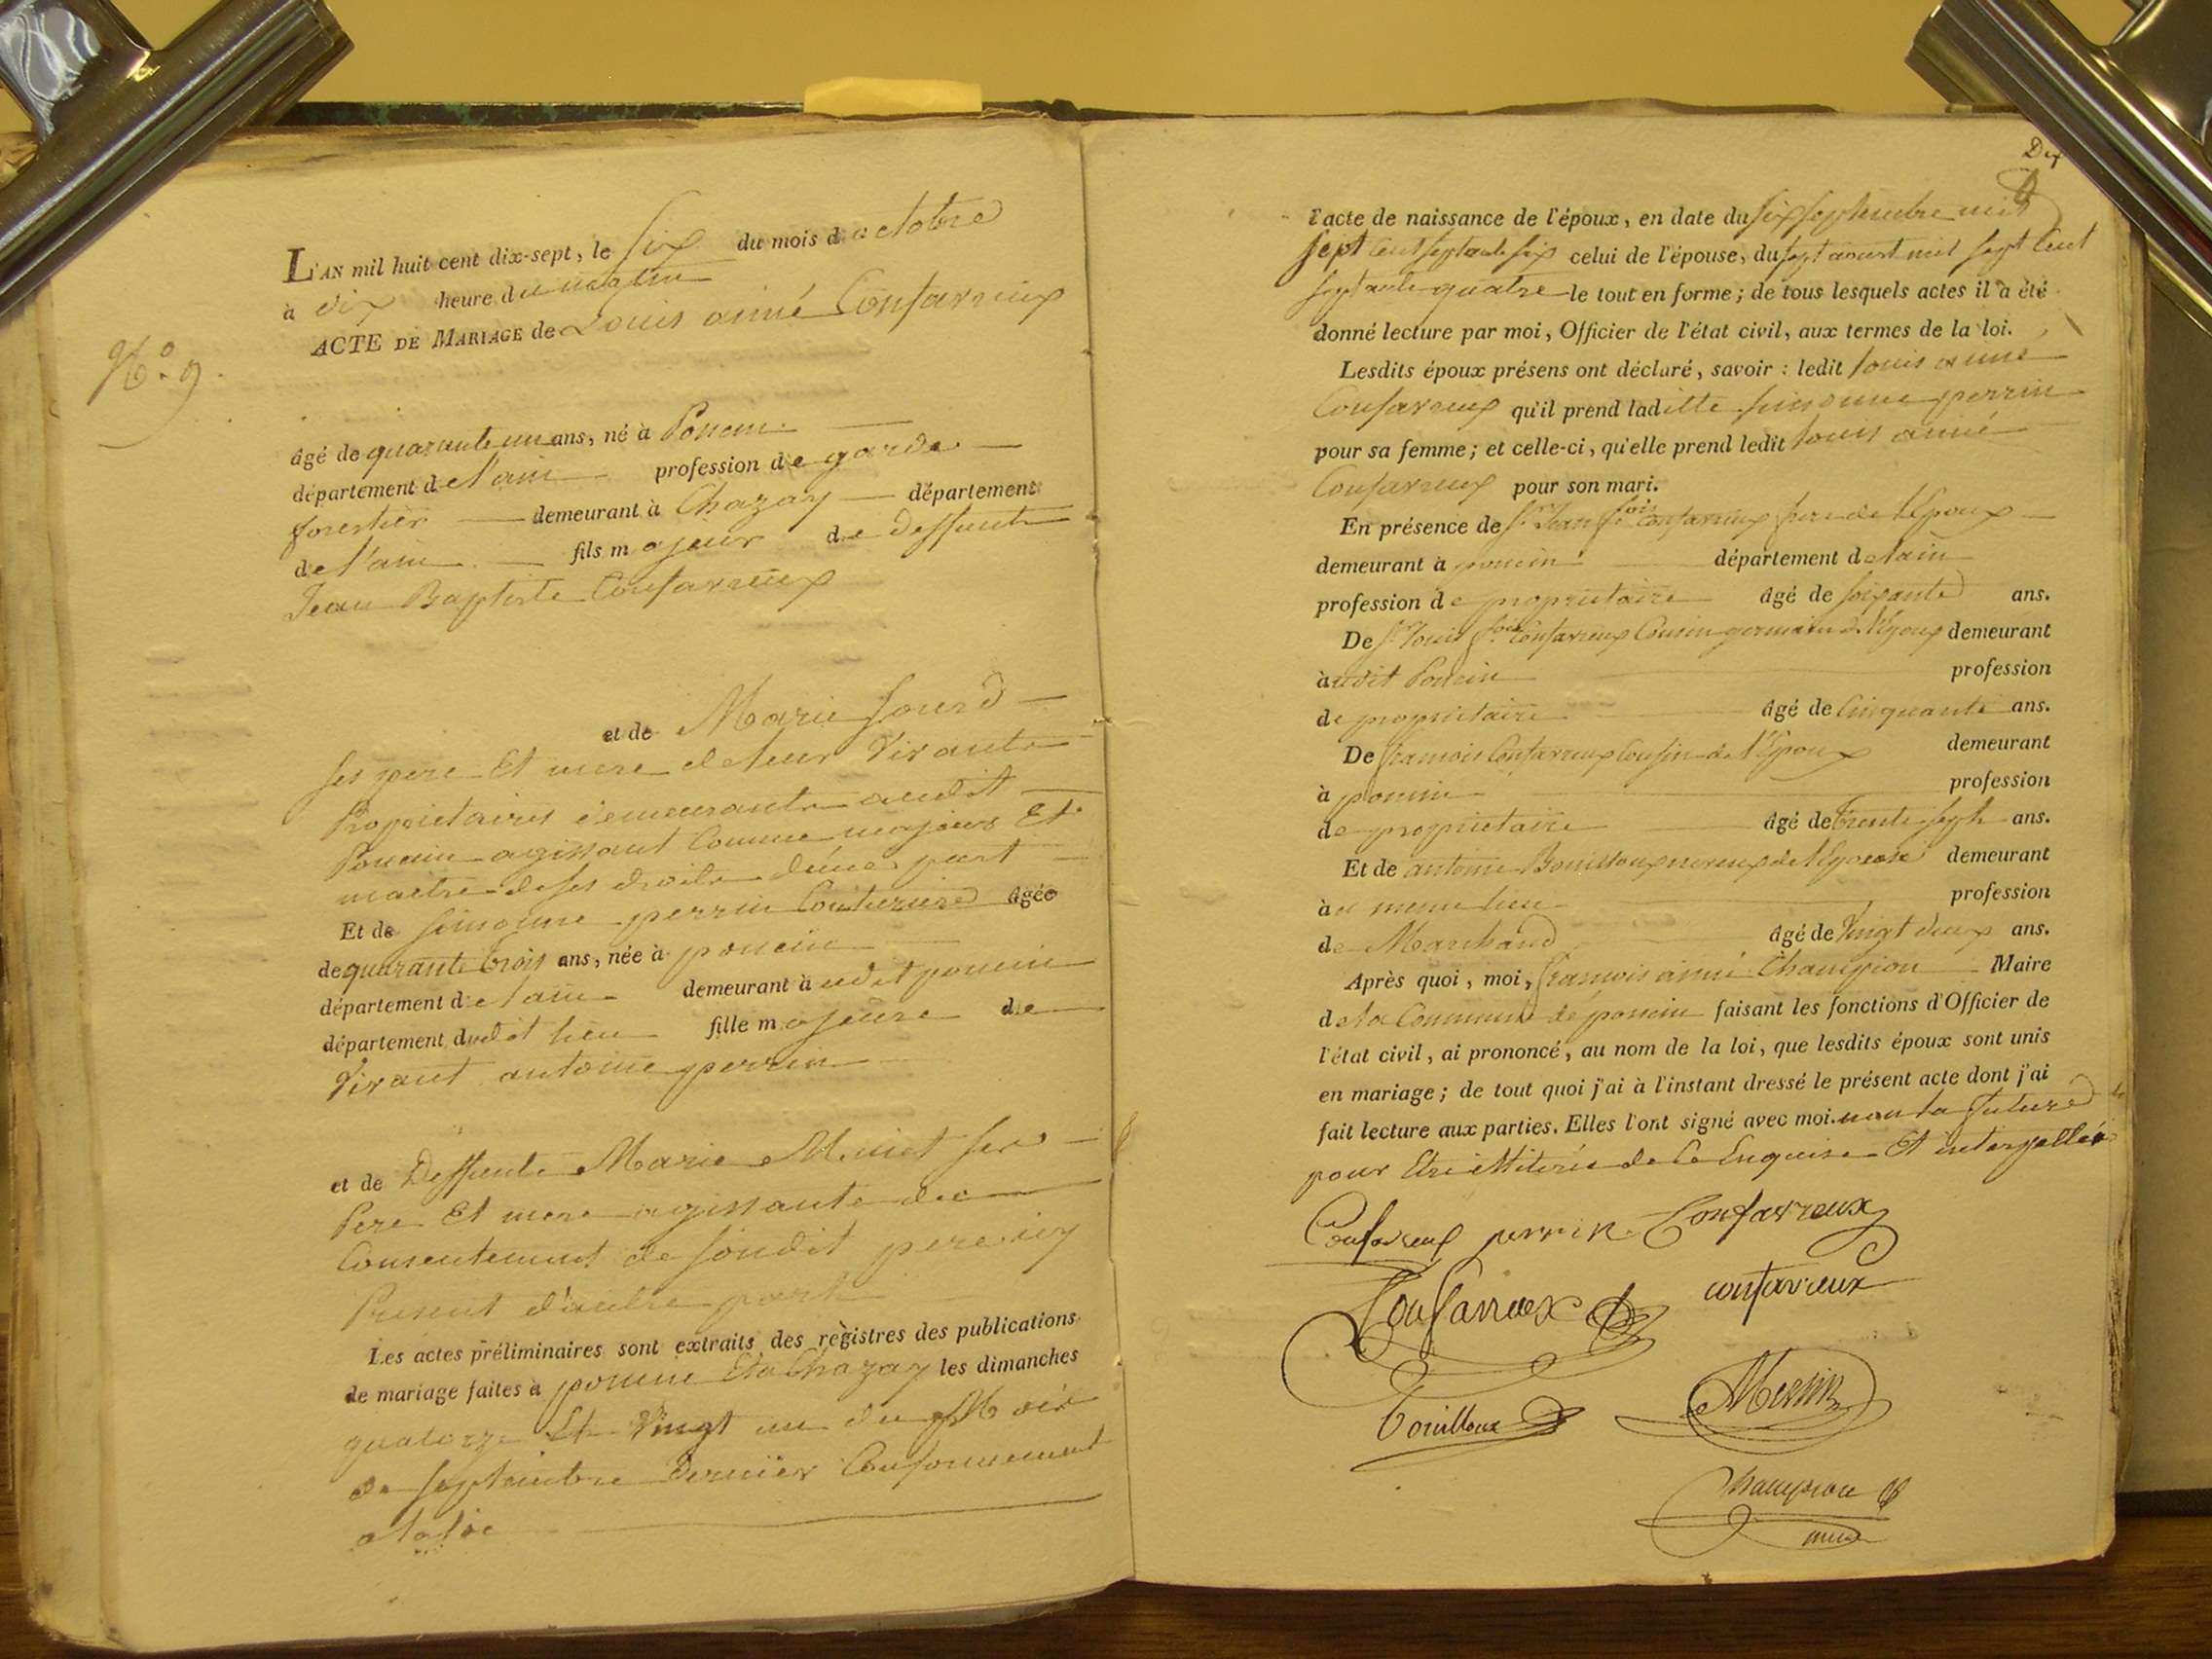 L'AN mil huit cent dix-sept, le six du mois d'octobre
à dix heure du matin
ACTE DE MARIAGE de Louis aimé Confavreux
N.º 9.
âgé de quarante un ans, né à Poncin
département de l'ain profession de garde
forestier demeurant à Chazay département
de l'ain fils majeur de deffunt
Jean Baptiste Confavreux
et de Marie
ses pere Et mere de leur vivant
Proprietaires demeurants audit
Poncin agissant Comme majeur Et
maitre de ses droits d'une part
Et de perrin Couturiere âgée
de quarante trois ans, née à poncin
département de l'ain demeurant audit poncin
département dudit lieu fille majeure de
vivant antoine perrin
et de Deffunte Marie ses
Pere Et mere agissante du
Consentement de sondit pere icy
Present d'autre part
Les actes préliminaires sont extraits des règistres des publications
de mariage faites à poncin Et a Chazay les dimanches
quatorze Et vingt un du mois
de septembre dernier Conformement
a la loi
Dix
l'acte de naissance de l'époux, en date du six septembre mil
sept Cent septante six celui de l'épouse, du sept aoust mil sept Cent
septante quatre le tout en forme; de tous lesquels actes il a été
donné lecture par moi, Officier de l'état civil, aux termes de la loi.
Lesdits époux présens ont déclaré, savoir : ledit Louis aimé
Confavreux qu'il prend laditte perrin
pour sa femme; et celle-ci, qu'elle prend ledit Louis aimé
Confavreux pour son mari.
En présence de Sr Jean fois Confavreux frere de l'Epoux
demeurant à poncin département de l'ain
profession de proprietaire âgé de soixante ans.
De Sr Louis fois Confavreux Cousin germain de l'Epoux demeurant
audit Poncin profession
de proprietaire âgé de Cinquante ans.
De francois Confavreux Cousin de l'Epoux demeurant
à poncin profession
de proprietaire âgé de trente sept ans.
Et de antoine neveux de l'Epouse demeurant
au meme lieu profession
de Marchand âgé de vingt deux ans.
Après quoi, moi, francois aimé Champion Maire
de la Commune de poncin faisant les fonctions d'Officier de
l'état civil, ai prononcé, au nom de la loi, que lesdits époux sont unis
en mariage; de tout quoi j'ai à l'instant dressé le présent acte dont j'ai
fait lecture aux parties. Elles l'ont signé avec moi. non la future
pour Etre illiterée de Ce Enquise Et interpellée
Confavreux perrin Confavreux
Confavreux confavreux
Champion
maire